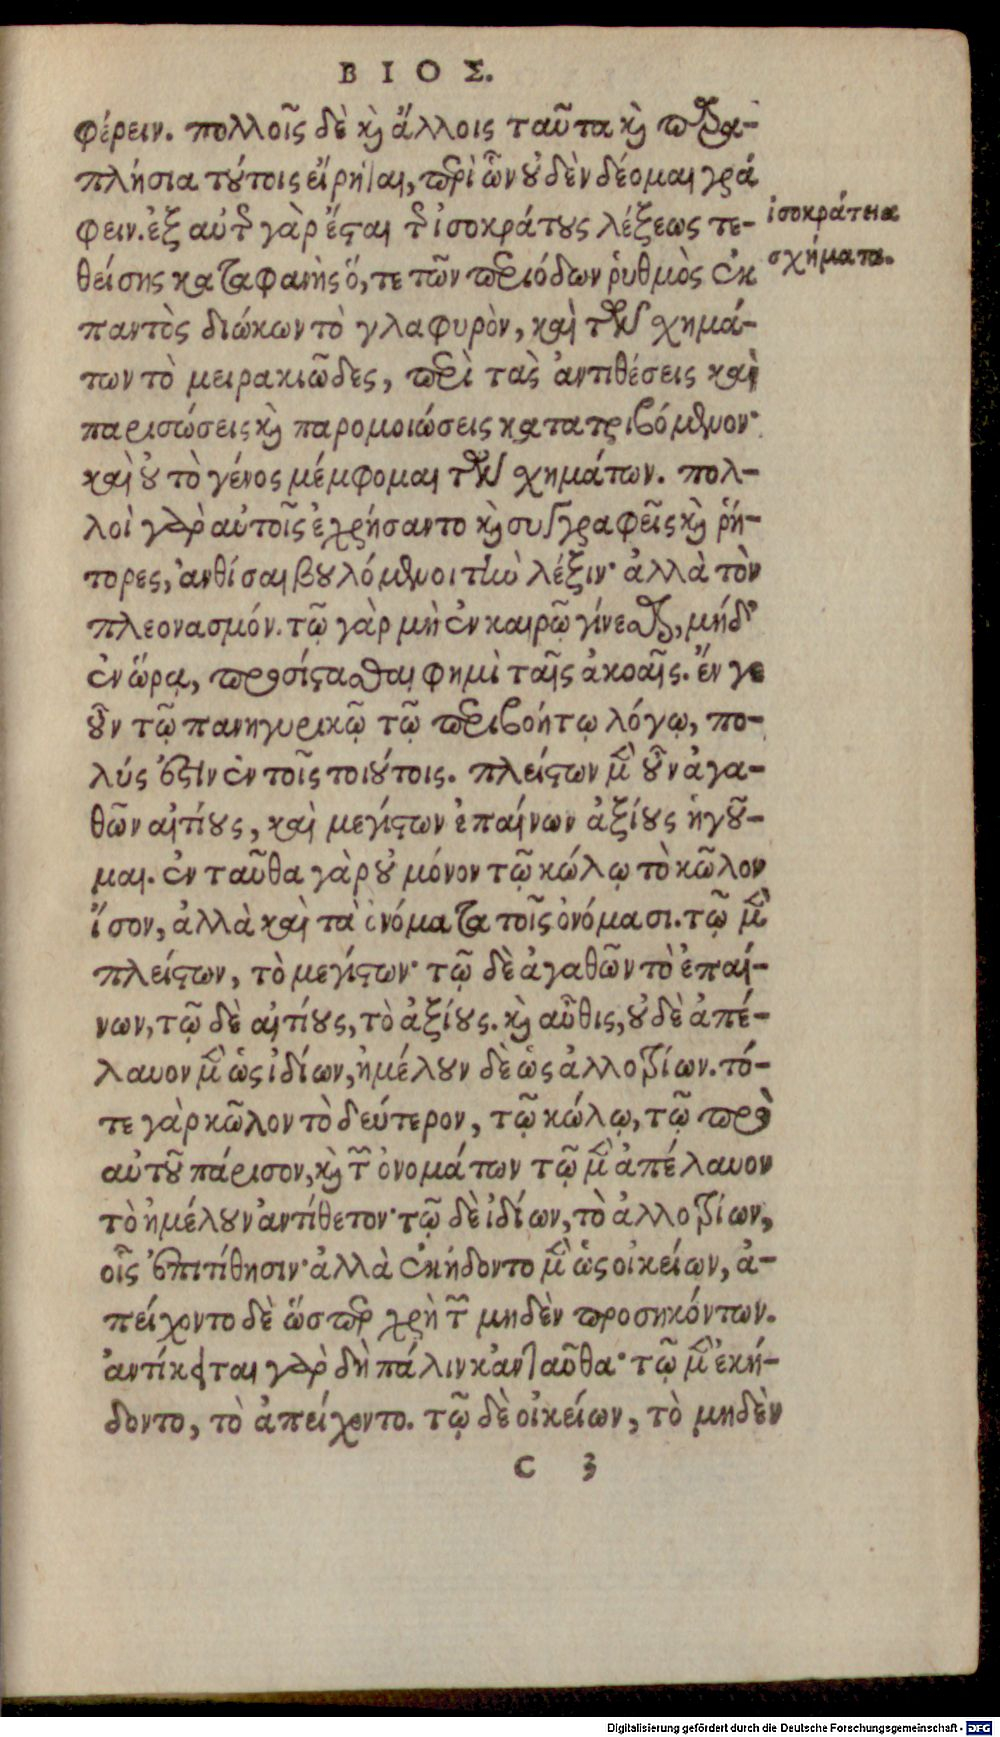 ΒΙΟΣ.
φέρειν. πολλοῖς δὲ καὶ ἄλλοις ταῦτα καὶ παρα-
πλήσια τούτοις εἴρηται, περὶ ὧν οὐδὲν δέομαι γρά
φειν. ἐξ αὐτῆς γὰρ ἔσται τῆς ἰσοκράτους λέξεως τε-
ἰσοκράτεια
θείσης καταφανὴς ὅ, τε τῶν περιόδων ῥυθμὸς ἐκ
σχήματα.
παντὸς διώκων τὸ γλαφυρὸν, καὶ τῶν σχημά-
των τὸ μειρακιῶδες, περὶ τὰς ἀντιθέσεις καὶ
παρισώσεις καὶ παρομοιώσεις κατατριβόμενον·
καὶ οὐ τὸ γένος μέμφομαι τῶν σχημάτων. πολ-
λοὶ γὰρ αὐτοῖς ἐχρήσαντο καὶ συγγραφεῖς καὶ ῥή-
τορες, ἀνθίσαι βουλόμενοι τὴν λέξιν· ἀλλὰ τὸν
πλεονασμόν. τῷ γὰρ μὴ ἐν καιρῷ γίνεσθαι, μήδ'
ἐν ὥρᾳ, προσίστασθαι φημὶ ταῖς ἀκοαῖς. ἔν γε
οὖν τῷ πανηγυρικῷ τῷ περιβοήτῳ λόγῳ, πο-
λύς ἐστιν ἐν τοῖς τοιούτοις. πλείστων μὲν οὖν ἀγα-
θῶν αἰτίους, καὶ μεγίστων ἐπαίνων ἀξίους ἡγοῦ-
μαι. ἐνταῦθα γὰρ οὐ μόνον τῷ κώλῳ τὸ κῶλον
ἴσον, ἀλλὰ καὶ τὰ ὀνόματα τοῖς ὀνόμασι. τῷ μὲν
πλείστων, τὸ μεγίστων· τῷ δὲ ἀγαθῶν τὸ ἐπαί-
νων, τῷ δὲ αἰτίους, τὸ ἀξίους. καὶ αὖθις, οὐδὲ ἀπέ-
λαυον μὲν ὡς ἰδίων, ἠμέλουν δὲ ὡς ἀλλοτρίων. τό-
τε γὰρ κῶλον τὸ δεύτερον, τῷ κώλῳ, τῷ πρὸ
αὐτοῦ πάρισον, καὶ τῶν ὀνομάτων τῷ μὲν ἀπέλαυον
τὸ ἠμέλουν ἀντίθετον· τῷ δὲ ἰδίων, τὸ ἀλλοτρίων,
οἷς ἐπιτίθησιν· ἀλλὰ ἐκήδοντο μὲν ὡς οἰκείων, ἀ-
πείχοντο δὲ ὥσπερ χρὴ τῶν μηδὲν προσηκόντων.
ἀντίκειται γὰρ δὴ πάλιν κἀνταῦθα· τῷ μὲν ἐκή-
δοντο, τὸ ἀπείχοντο. τῷ δὲ οἰκείων, τὸ μηδὲν
C 3
Digitalisierung gefördert durch die Deutsche Forschungsgemeinschaft - DFG